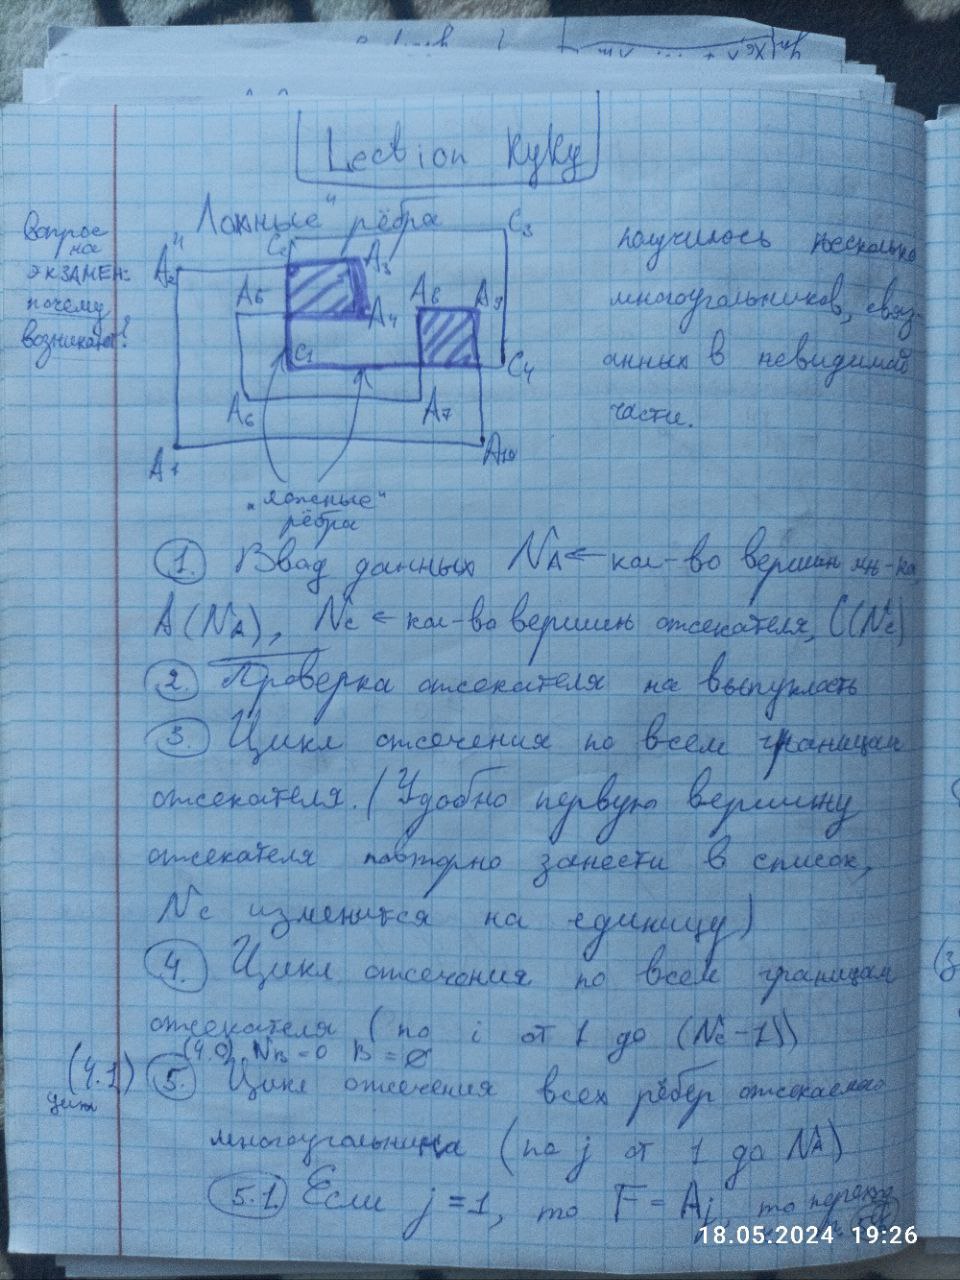 Lection КуКу
"Ложные" рёбра
Вопрос
на
ЭКЗАМЕН:
почему
возникают?
A2
C2
C3
A3
A5
A4
A8
A9
C1
C4
A6
A7
A1
A10
"ложные"
рёбра
получилось несколько
многоугольников, связ-
анных в невидимой
части.
1. Ввод данных NA ← кол-во вершин мн-ка,
A(NA), Nc ← кол-во вершин отсекателя, C(Nc)
2. Проверка отсекателя на выпуклость
3. Цикл отсечения по всем границам
отсекателя. (Удобно первую вершину
отсекателя повторно занести в список,
Nc изменится на единицу)
4. Цикл отсечения по всем границам
отсекателя (по i от 1 до (Nc-1))
(4.0) NB = 0 B = ∅
(4.1) 5. Цикл отсечения всех рёбер отсекаемого
цикл
многоугольника (по j от 1 до NA)
5.1. Если j = 1, то F = Aj, то
18.05.2024 19:26